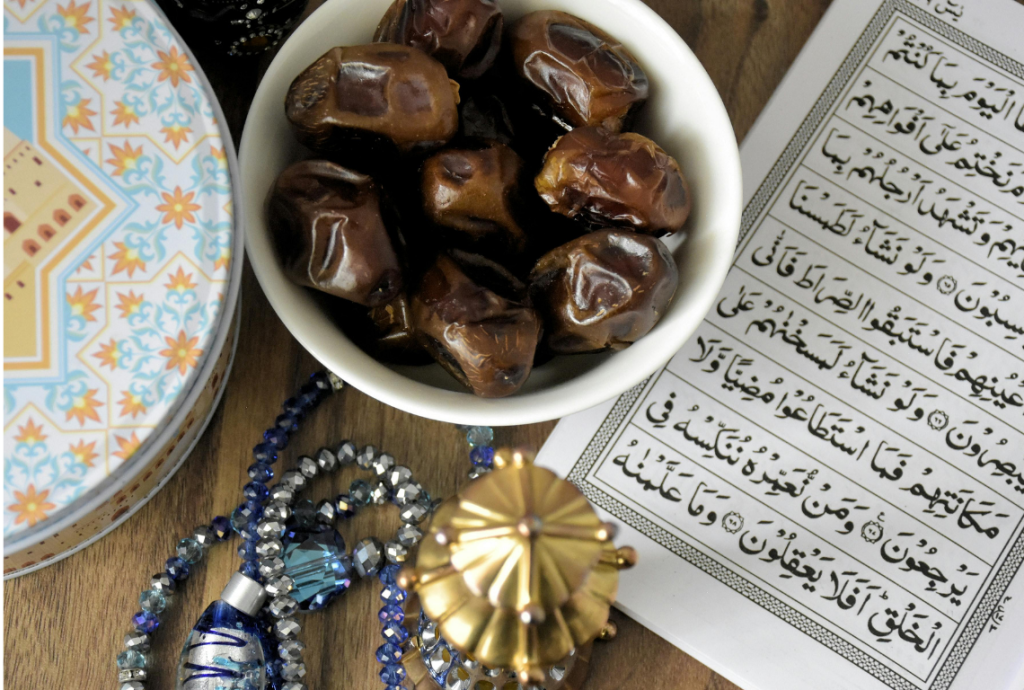 الْيَوْمَ بِمَا كُنْتُمْ
نَخْتِمُ عَلٰٓى اَفْوَاهِهِمْ
وَتَشْهَدُ اَرْجُلُهُمْ بِمَا
۝ وَلَوْ نَشَآءُ لَطَمَسْنَا
اَعْيُنِهِمْ فَاسْتَبَقُوا الصِّرَاطَ فَاَنّٰى
يُبْصِرُوْنَ ۝ وَلَوْ نَشَآءُ لَمَسَخْنٰهُمْ عَلٰى
مَكَانَتِهِمْ فَمَا اسْتَطَاعُوْا مُضِيًّا وَّلَا
يَرْجِعُوْنَ ۝ وَمَنْ نُّعَمِّرْهُ نُنَكِّسْهُ فِى
الْخَلْقِ ؕ اَفَلَا يَعْقِلُوْنَ ۝ وَمَا عَلَّمْنٰهُ